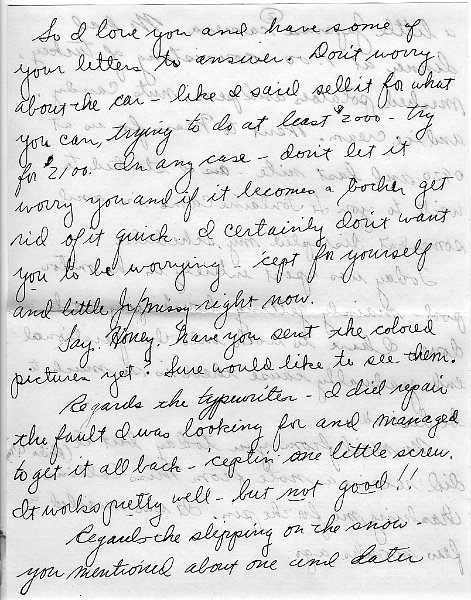 So I love you and have some of
your letters to answer. Don't worry
about the car - like I said sell it for what
you can, trying to do at least $2000 - try
for $2100. In any case - don't let it
worry you and if it becomes a bother get
rid of it quick. I certainly don't want
you to be worrying 'cept for yourself
and little Jr/Missy right now.
Say, Honey, have you sent the colored
pictures yet. Sure would like to see them.
Regards the typewriter - I did repair
the fault I was looking for and managed
to get it all back - 'ceptin' one little screw.
It works pretty well - but not good!!
Regards the slipping on the snow -
you mentioned about one and later